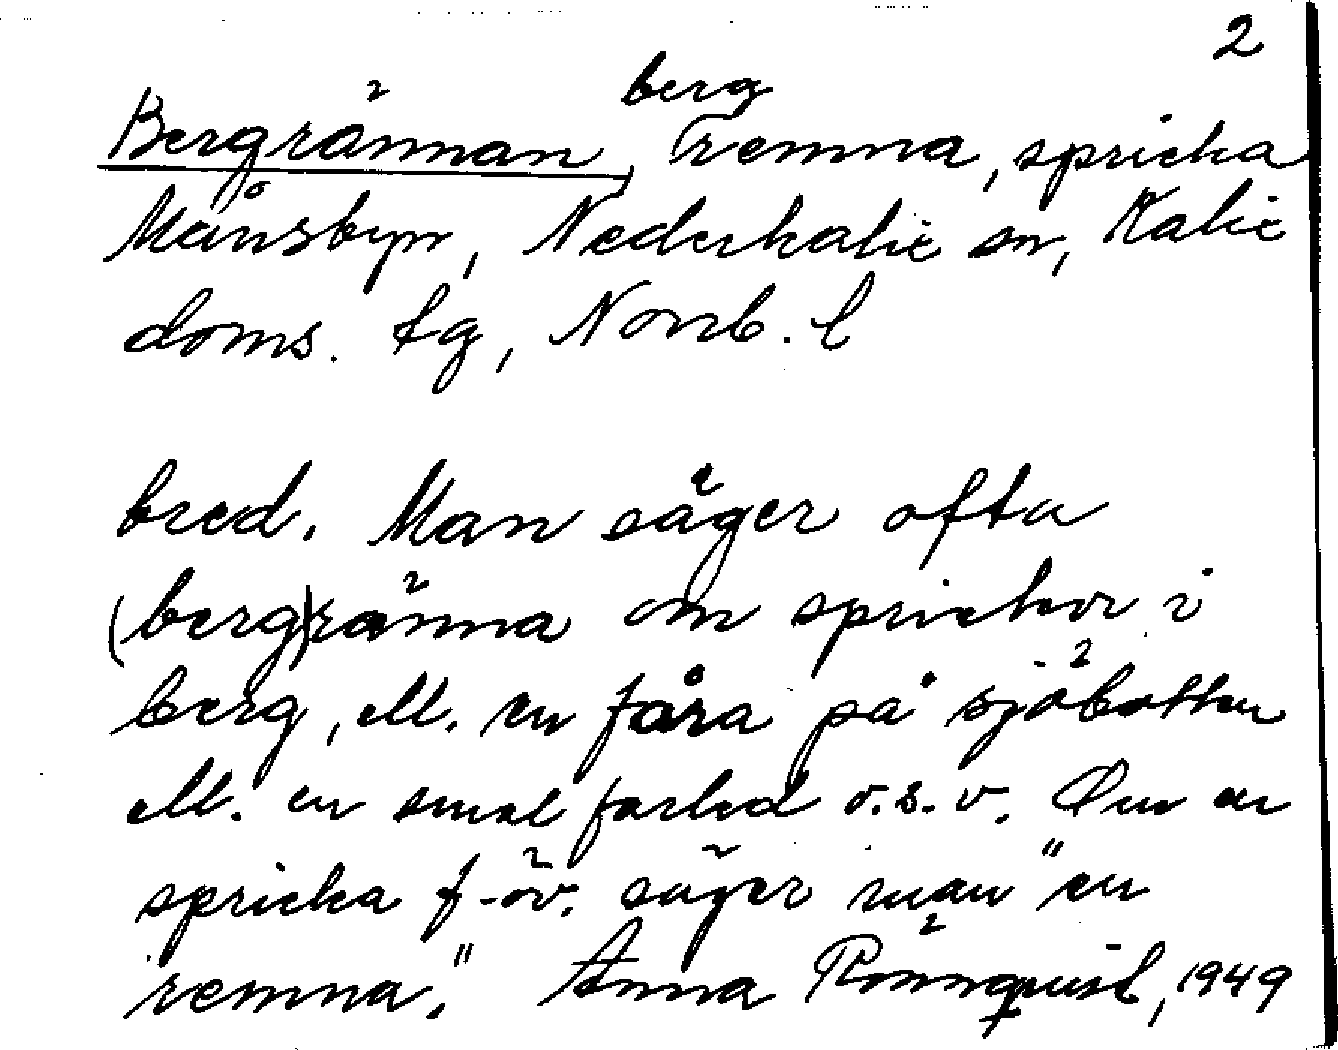 2
Bergrännan, bergremna, spricka
Månsbyn, Nederkalix sn, Kalix
doms. tg, Norrb. l
bred. Man säger ofta
(berg)ränna om sprickor i
berg, ell. en fåra på sjöbotten
ell. en smal farled o.s.v. Om en
spricka f-öv. säger man "en
remna." Anna Rönnquist, 1949